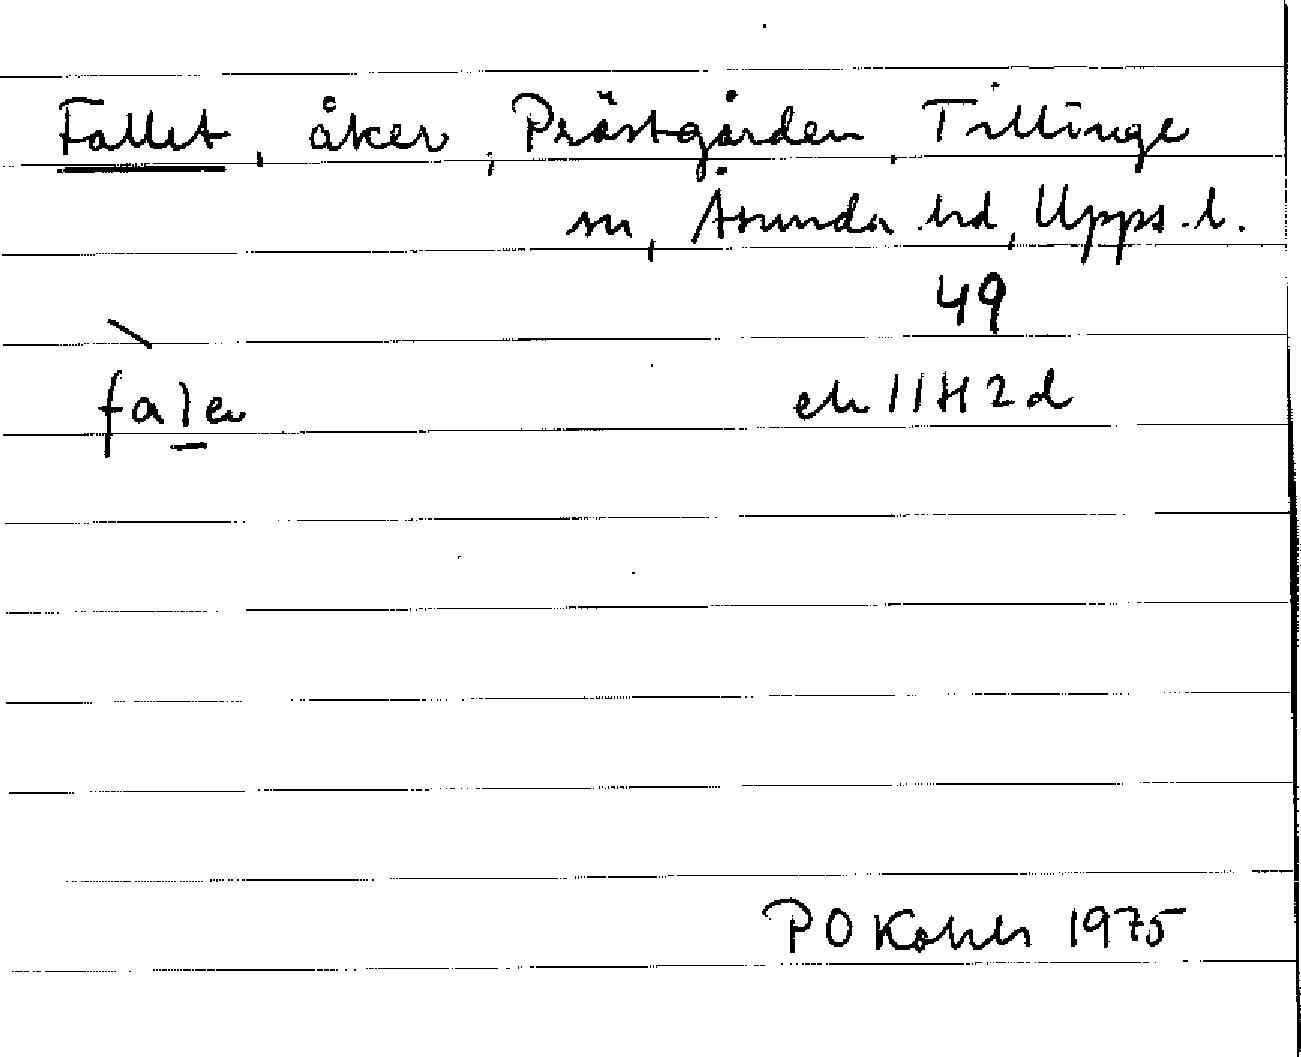 Fallet, åker, Prästgården, Tillinge
sn, Åsunda hd, Upps. l.
49
ek 11H2d
PO 1975